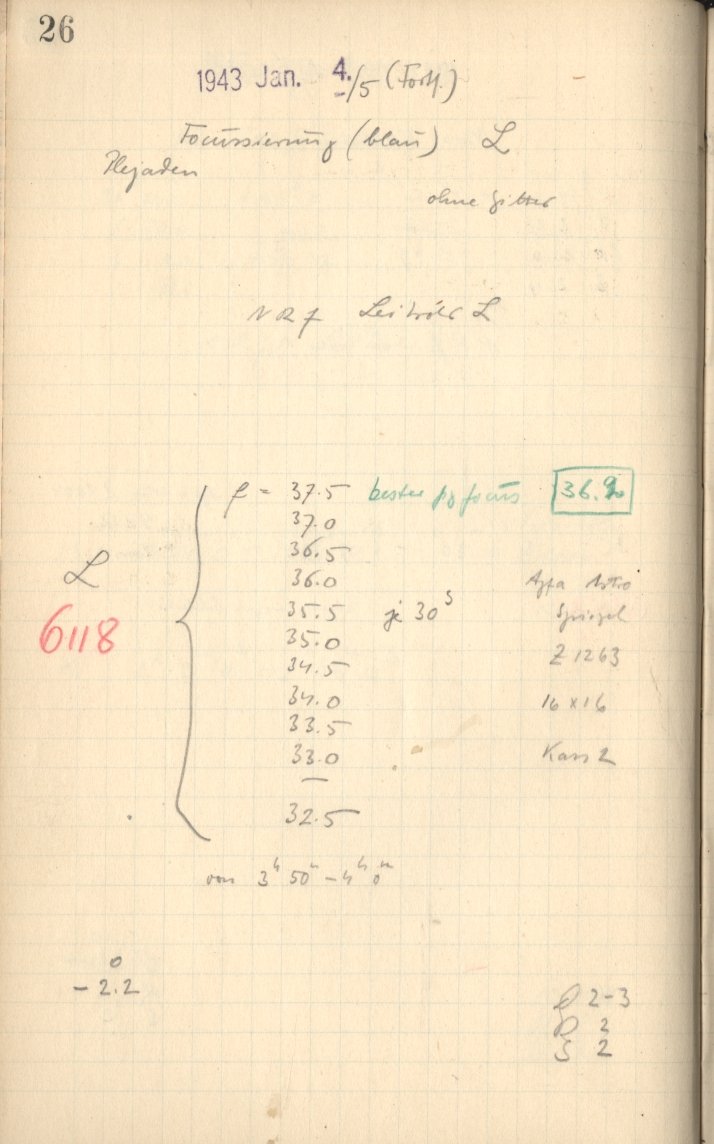 26
1943 Jan. 4./5 (Forts.)
Focussierung (blau) L
Plejaden
ohne Gitter
Leitrohr L
f = 37.5 bester ptg focus 36.9
37.0
36.5
36.0
L
Agfa Astro
35.5 je 30s
Spiegel
6118
35.0
34.5
Z 1263
34.0
16 x 16
33.5
33.0
Kass 2
—
32.5
von 3h 50m - 4h 0m
o
- 2.2
2-3
2
S 2